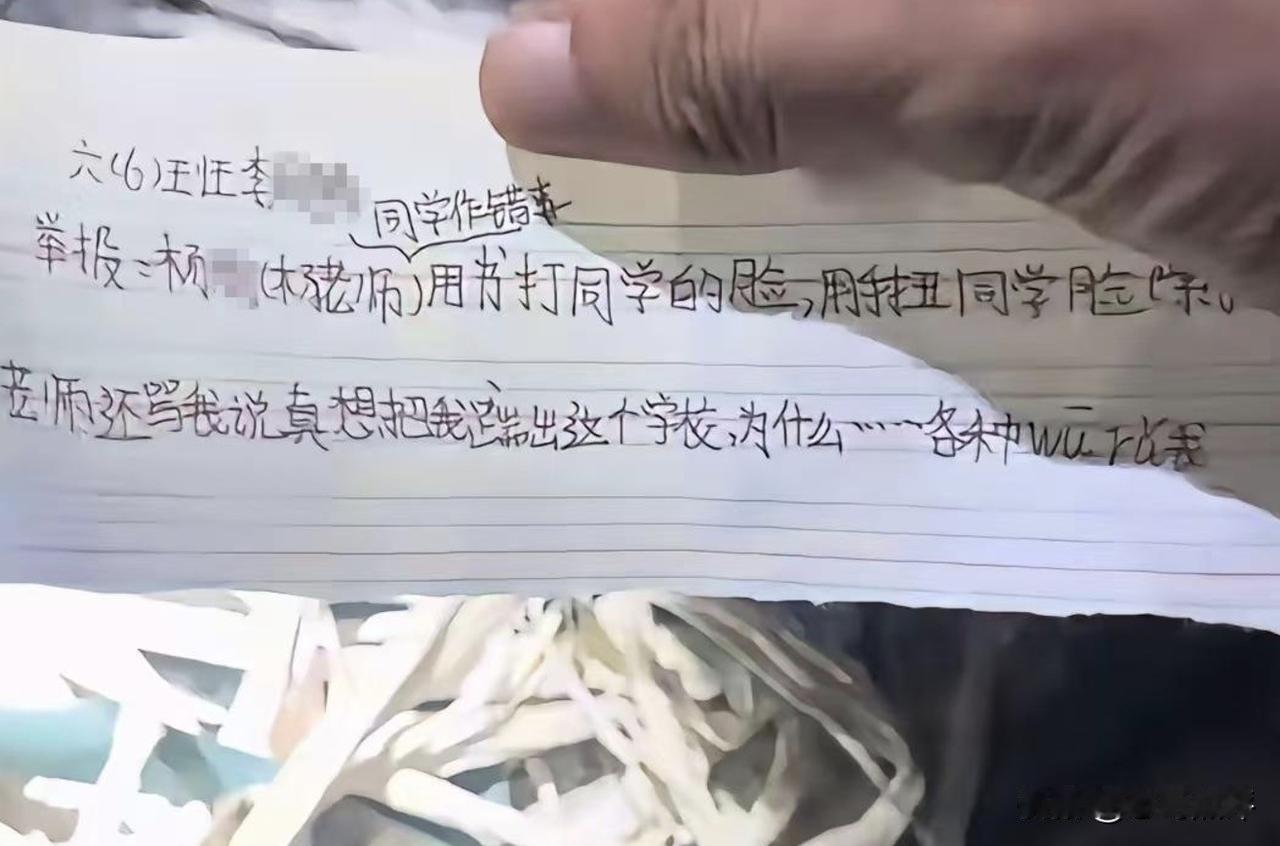 六(6)班班李
同学作错事
举报:杨(杨老师)用书打同学的脸,用手扭同学脸
老师还骂我说真想把我踹出这个学校,为什么……各种wū 我